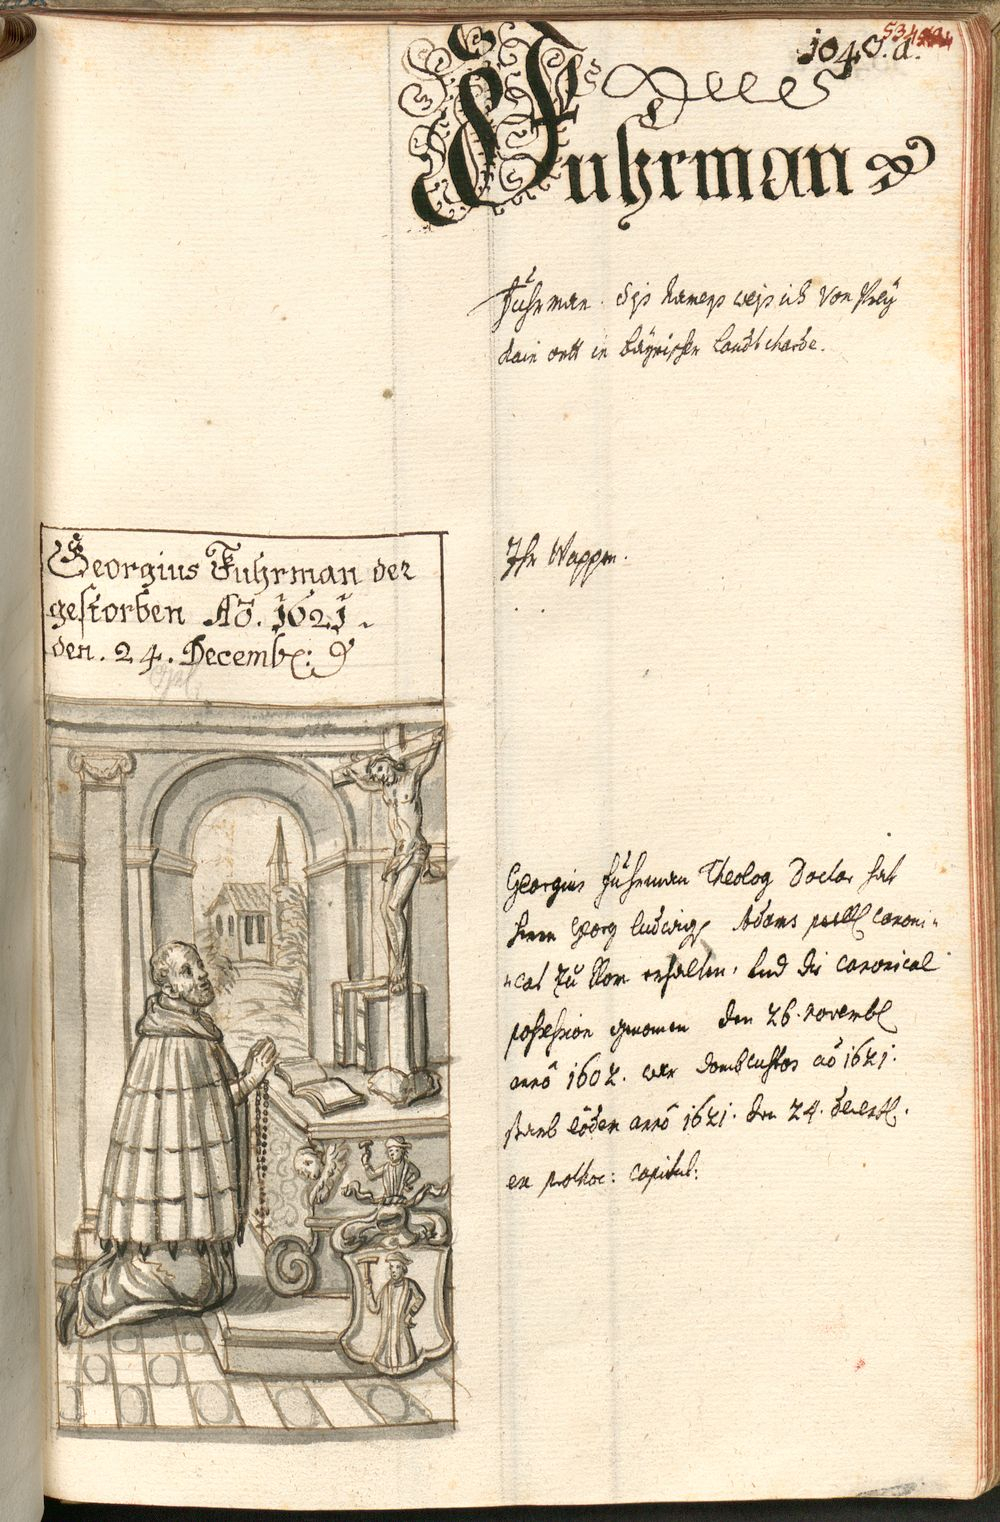 534
1040. a.
Fuhrman
Fuhrman. diss Namens weis ich Von Frey
dain ortt in baÿrischer Landtcharte.
Georgius Fuhrman der
gestorben Aō. 1621.
den. 24. Decemb:
Ihr Wappen.
Georgius Fuhrman Theolog Doctor hat
herrn Georg Ludwigs Adams canoni-
-cat zu Rom erhalten. Und die canonical
possession genomen den 26. novemb
anno 1602. war dombcustos aō 1621.
starb anno 1621. den 24. decemb.
ex prothoc: capitul: